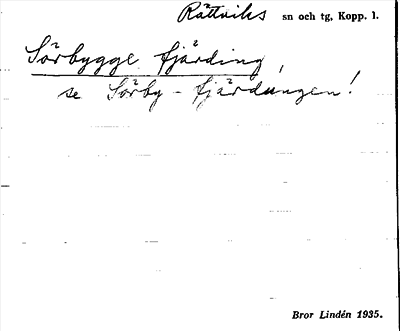 Rättviks sn och tg, Kopp. l.
Sörbygge fjärding,
se Sörby-fjärdungen!
Bror Lindén 1935.